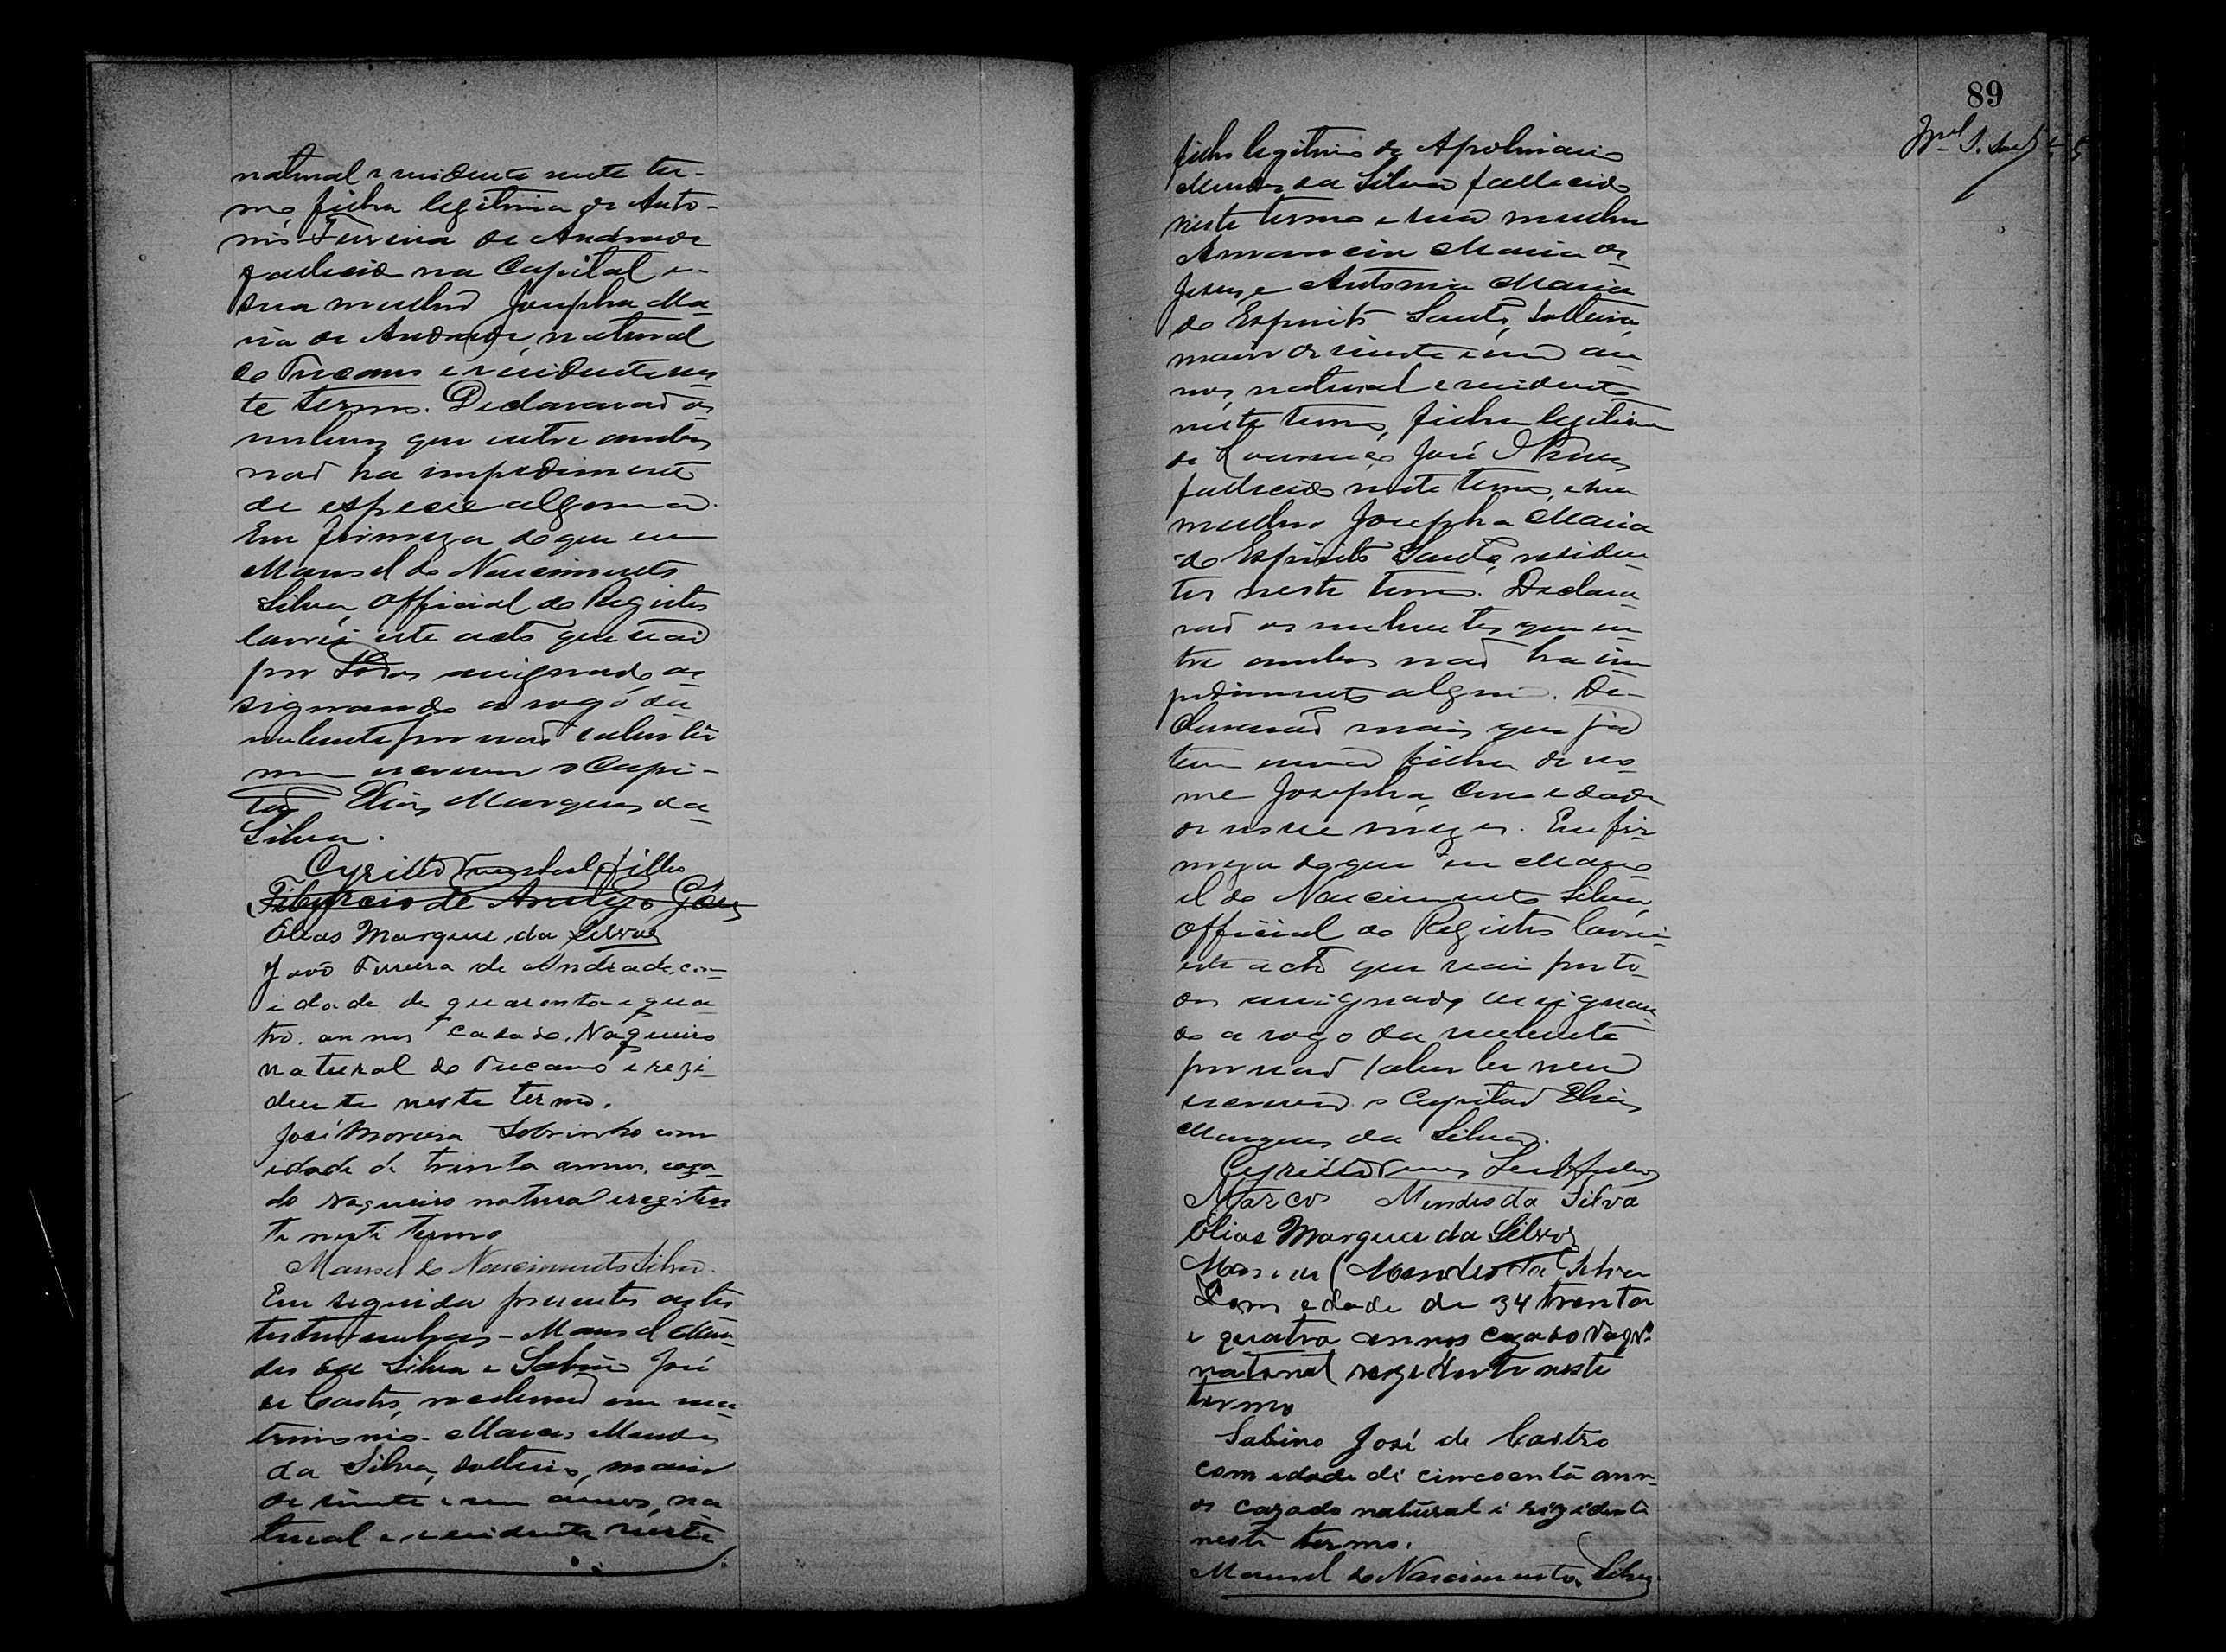 natural e residente neste ter-
mo, filha legitima de Anto-
nio Ferreira de Andrade
fallecido na Capital e
sua mulher Josepha Ma-
ria de Andrade, natural
do Tucano e residente nes-
te termo. Declararaõ os
nubentes que entre ambos
naõ ha impedimento
de especie alguma.
Em firmeza do que eu
Manoel do Nascimento
Silva, Official do Registro
lavrei este acto que vai
por todos assignado as-
signando a rogo da
nubente por naõ saber ler
nem escrever o Capi-
taõ Elias Marques da
Silva.
Cyrillo Leal filho
Tiburcio de Araujo Góes
Elias Marques da Silva
Joaõ Ferreira de Andrade, com
idade de quarenta e qua
tro annos casado. Vaqueiro
natural do Tucano e rezi-
dente neste termo.
José Moreira Sobrinho com
idade de trinta annos, caza
do Vaqueiro natural e regiten
te neste termo
Manoel do Nascimento Silva.
Em seguida presentes as tes
testemunhas - Manoel Men-
des da Silva e Sabino José
de Castro, receberaõ em ma-
trimonio - Marcos Mendes
da Silva, solteiro, maior
de vinte e um annos, na-
tural e residente neste
89
filho legitimo de Apolinario
Mendes da Silva fallecido
neste termo e sua mulher
Amancia Maria de
Jesus, e Antonia Maria
do Espirito Santo, solteira,
maior de vinte e um an-
nos, natural e residente
neste termo, filha legitima
de Lourenço José
fallecido neste termo, e sua
mulher Josepha Maria
do Espirito Santo, residen-
tes neste termo. Declara-
raõ os nubentes que en-
tre ambos naõ ha im-
pedimento algum. De-
clararaõ mais que já
tem uma filha de no-
me Josepha, com edade
de nove mezes. Em fir-
meza do que eu Mano-
el do Nascimento Silva,
Official do Registro lavrei
este acto que vai por to-
dos assignado, assignan-
do a rogo da nubente
por naõ saber ler nem
escrever o Capitaõ Elias
Marques da Silva.
Cyrillo Leal filho
Marcos Mendes da Silva
Elias Marques da Silva
Manoel Mendes da Silva
Com edade de 34 trenta
e quatro annos cazado Vaqr.º
natural rezedente neste
termo
Sabino José de Castro
com edade de cincoenta ann-
os cazado natural e rezidente
neste termo.
Manoel do Nascimento Silva.